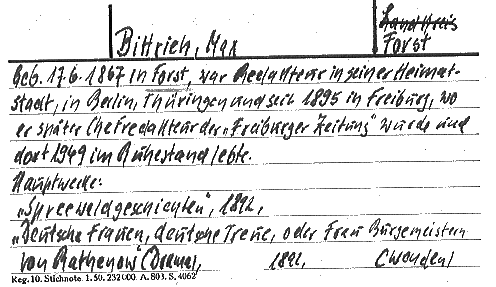 Landkreis
Bittrich, Max Forst
Geb. 17.6.1867 in Forst, war Redakteur in seiner Heimat-
stadt, in Berlin, Thüringen und seit 1895 in Freiburg, wo
er später Chefredakteur der „Freiburger Zeitung" wurde und
dort 1949 im Ruhestand lebte.
Hauptwerke:
„Spreewaldgeschichten", 1892,
„Deutsche Frauen, deutsche Treue, oder Frau Bürgemeistern
von Rathenow" (Drama), 1892,
Reg. 10. Stichnote. 1. 50. 232000. A. 803. S. 4062